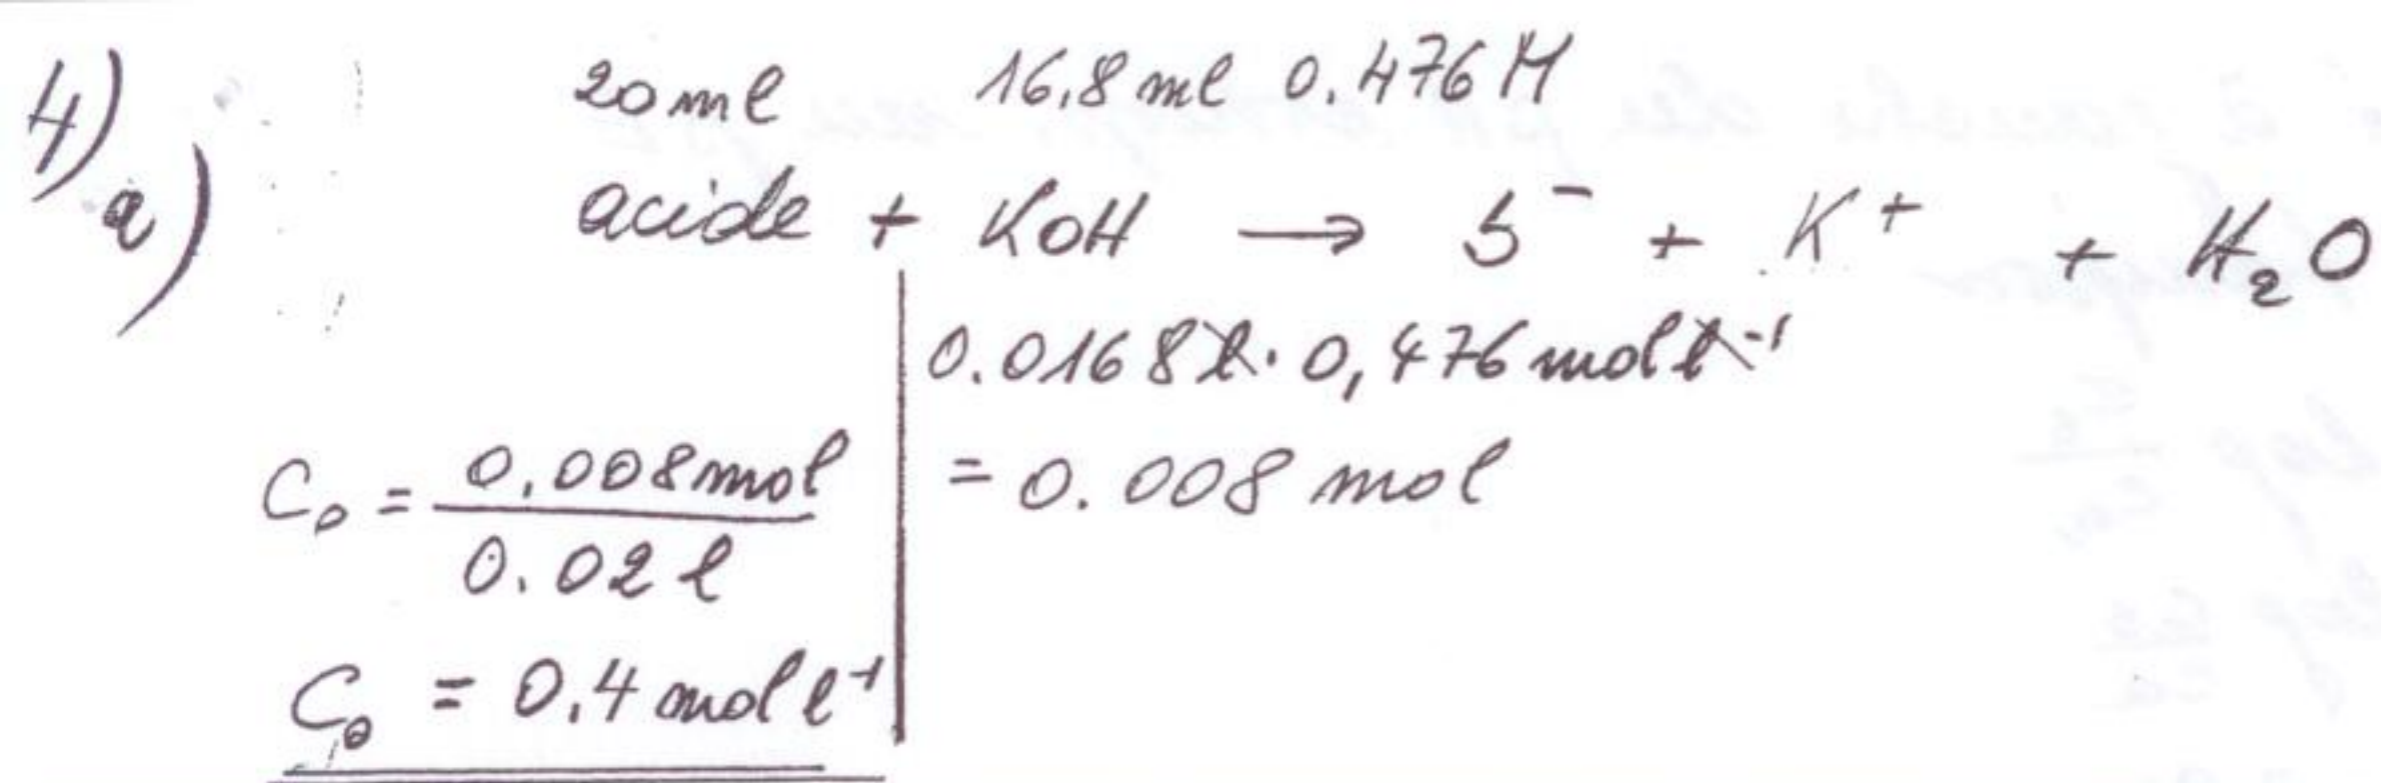 4)
a)
20 ml 16,8 ml 0.476 M
acide + KOH → S⁻ + K⁺ + H₂O
0.0168 l · 0,476 mol l⁻¹
C₀ = 0,008 mol / 0.02 l
= 0.008 mol
C₀ = 0,4 mol l⁻¹